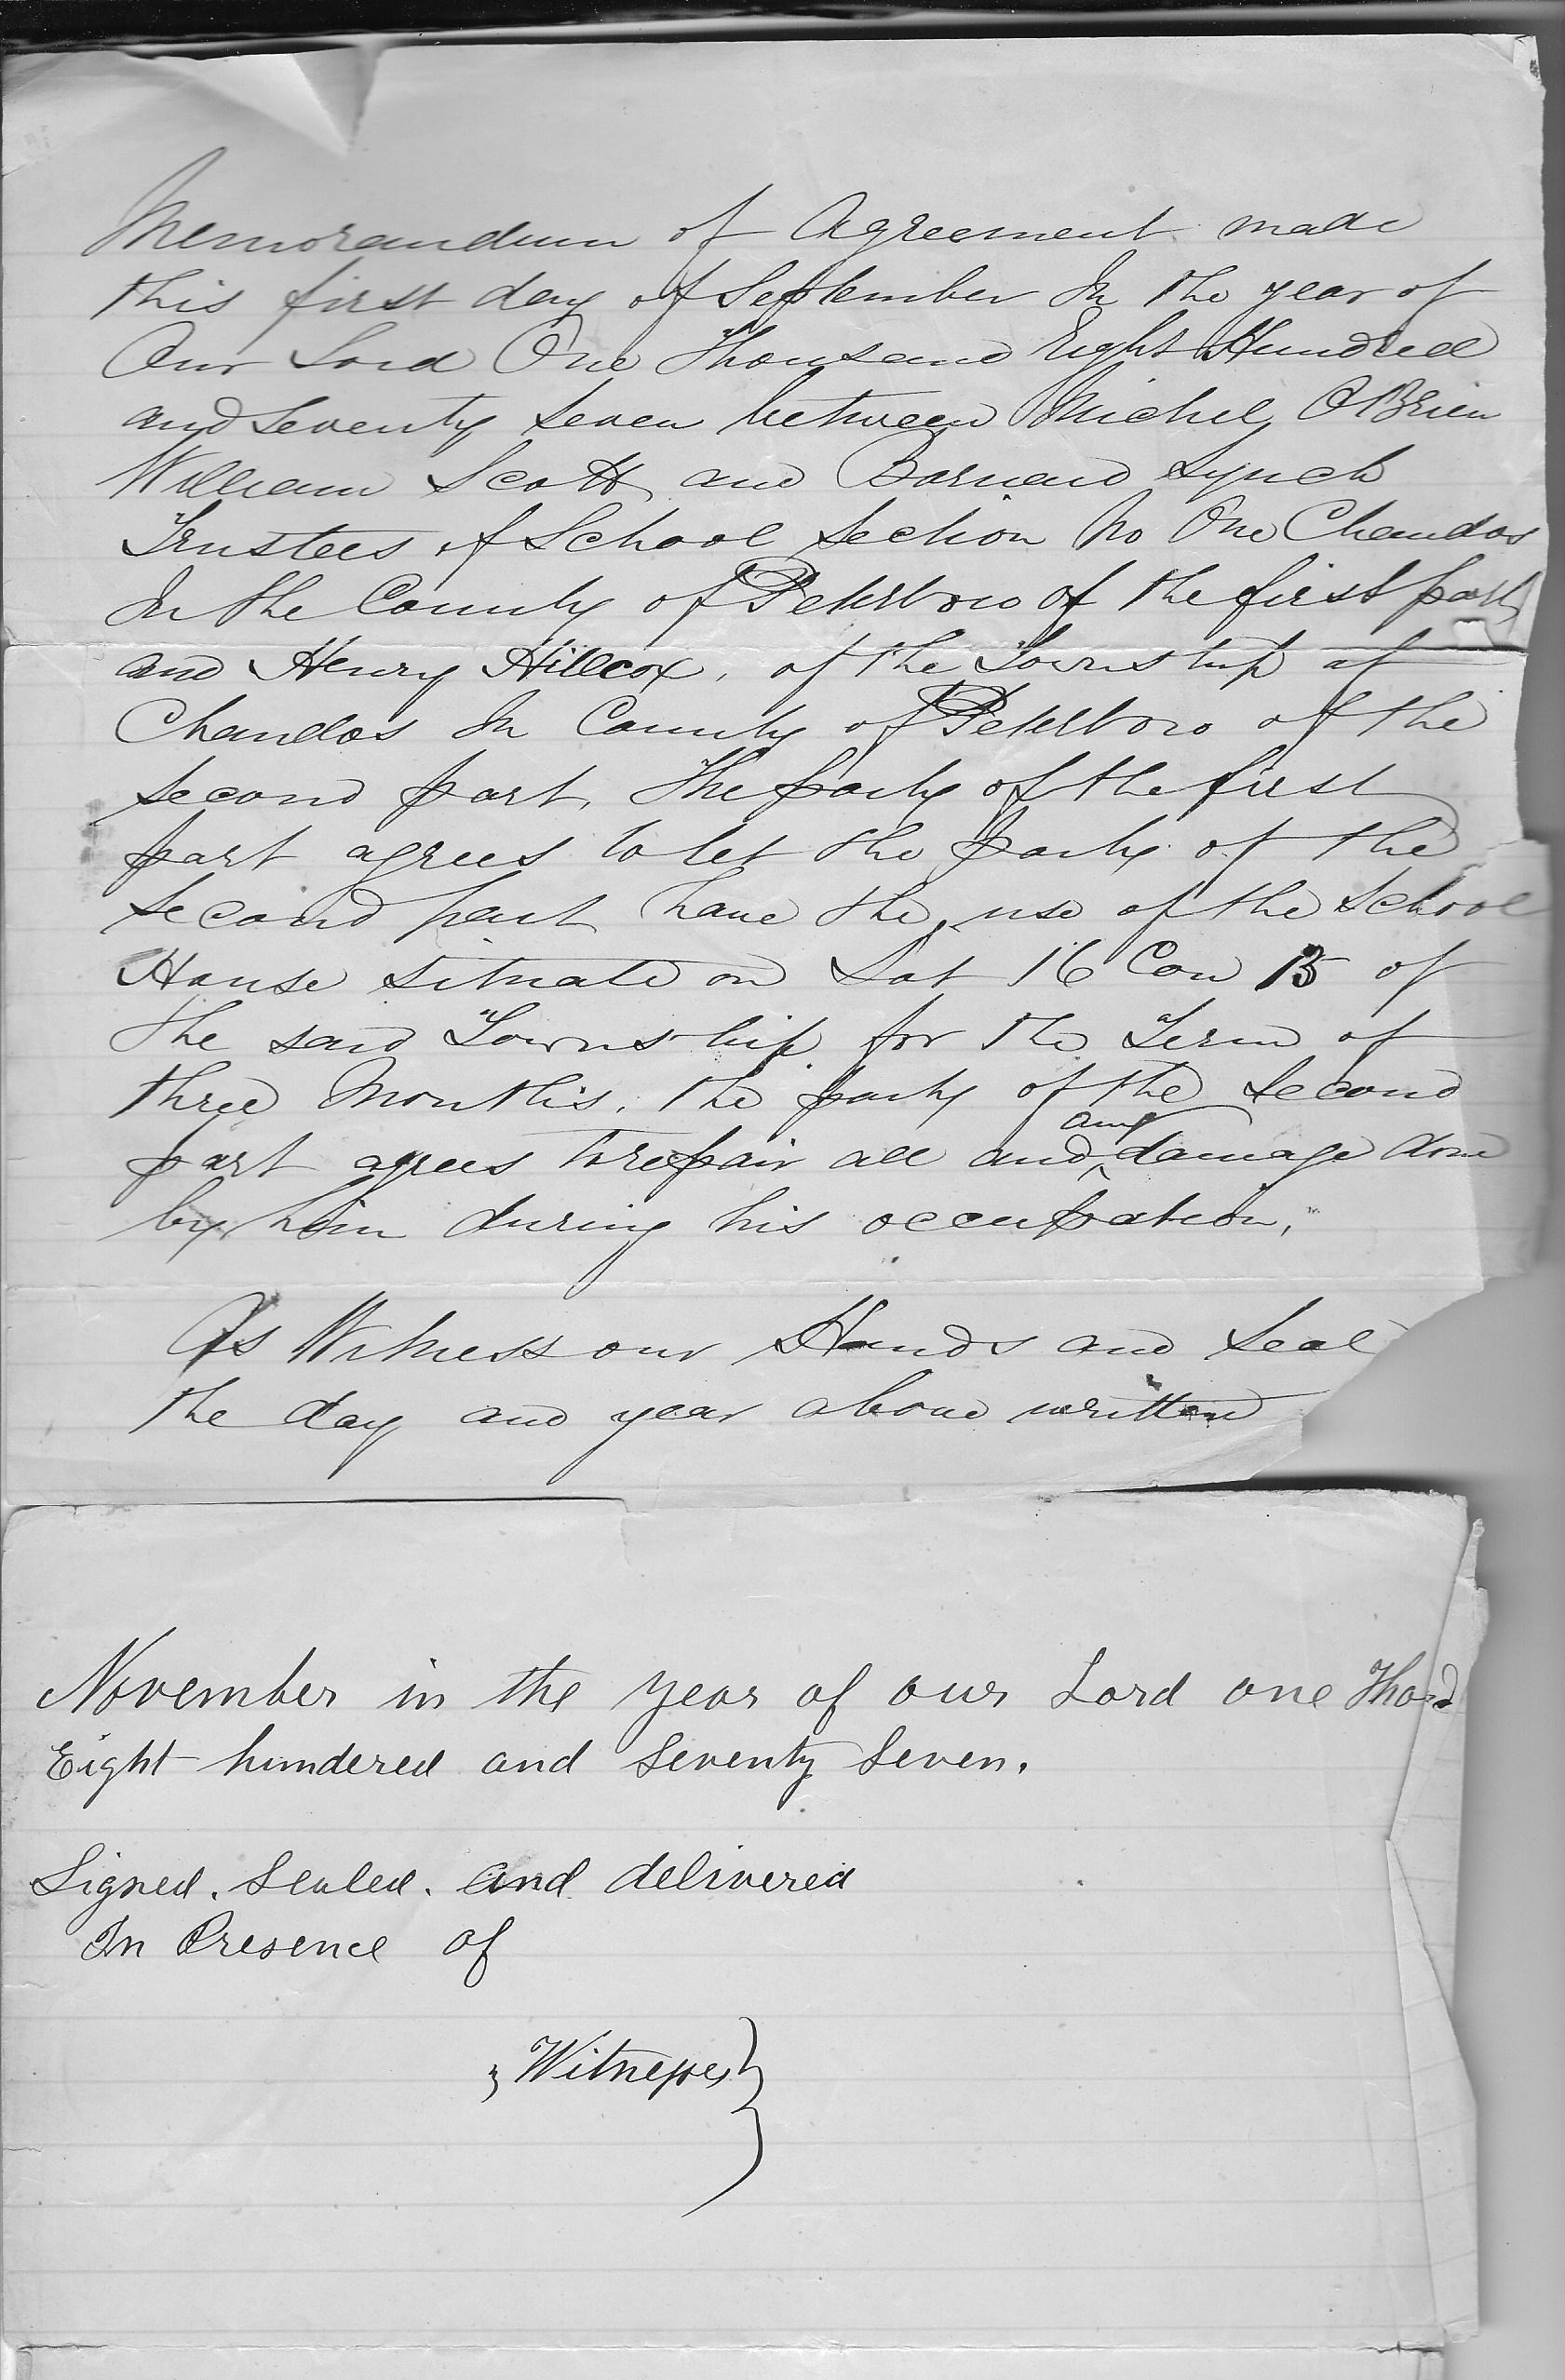 Memorandum of Agreement made
this first day of September In the year of
Our Lord One Thousand Eight Hundred
and Seventy Seven between Michel OBrien
William Scott and Barnard Lynch
Trustees of School Section No One Chandos
In the County of Peterboro of the first part
and Henry Hillcox, of the Township of
Chandos In County of Peterboro of the
Second part, The party of the first
part agrees to let the party of the
Second part have the use of the School
House situate on Lot 16 Con 15 of
the said Township for the Term of
three Months, the party of the Second
part agrees to repair all and any damage done
by him during his occupation,
As Witness our Hands and Seal
the day and year above written
November in the year of our Lord one Thosd
Eight hundered and Seventy Seven.
Signed. Sealed. and delivered
In Presence of
Witnesses